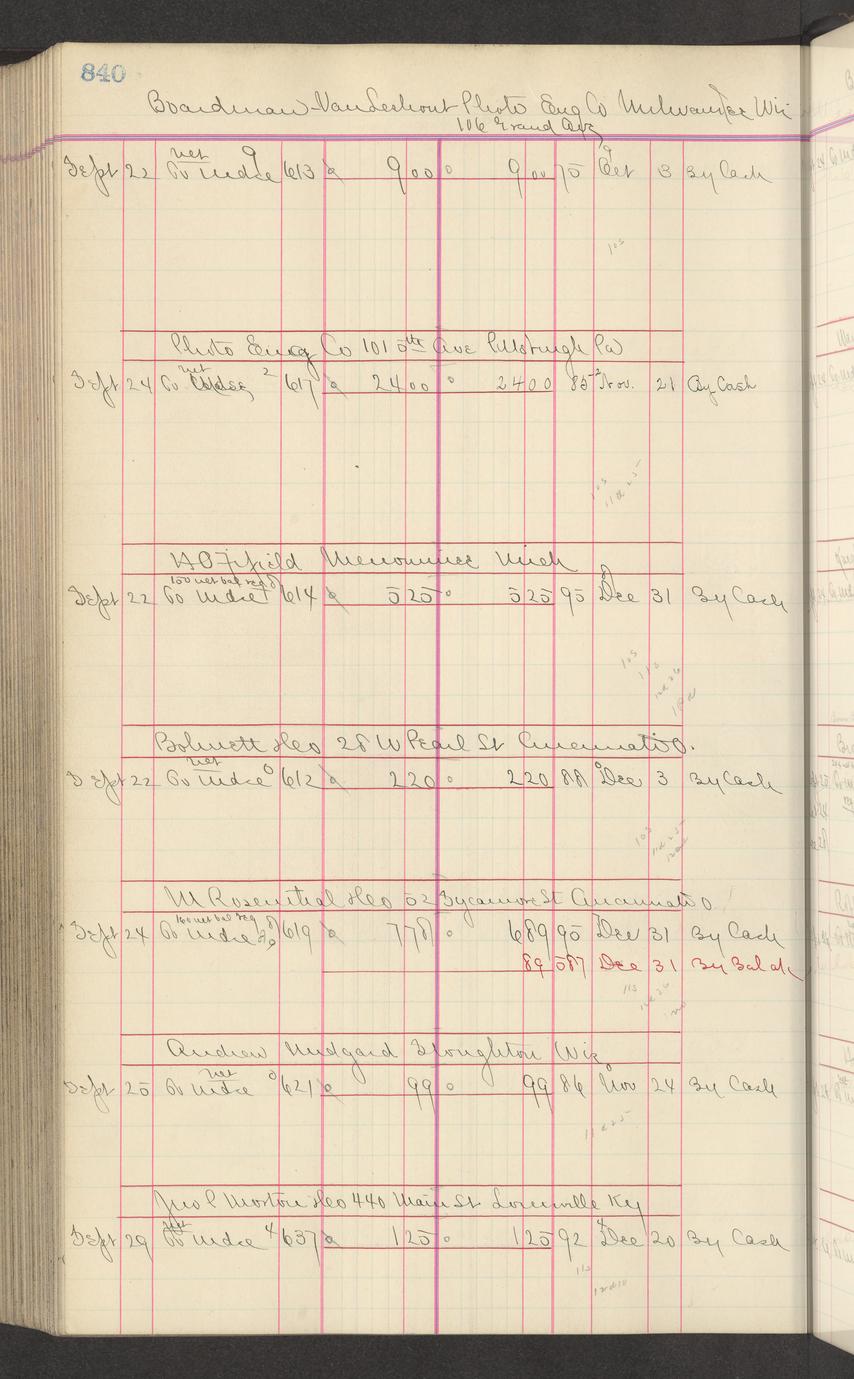 840
Boardman Vanderhout Photo Eng Co Milwaukee Wis
106 Grand Ave
Sept 22 To Mdse net 9 613 9 00 9 00 75 Oct 3 By Cash
105
Photo Eng Co 101 5th Ave Pittsburgh Pa
Sept 24 To Mdse net 2 617 24 00 24 00 85 Nov. 21 By Cash
105
11 & 25
Fifield Menominee Mich
100 net bal reg
Sept 22 To Mdse 614 5 25 5 25 95 Dec 31 By Cash
105
115
St Cincinnati O.
Sept 22 To Mdse net 0 612 2 20 2 20 88 Dec 3 By Cash
105
M Rosenthal & Co 52 Sycamore St Cincinnati O
net bal reg
Sept 24 To Mdse 619 7 78 6 89 95 Dec 31 By Cash
89 587 Dec 31 By Bal
115
Andrew Midgard Stoughton Wis
Sept 25 To Mdse net 0 621 99 99 86 Nov 24 By Cash
11 & 25
Jno P Morton & Co 440 Main St Louisville Ky
Sept 29 To Mdse net 4 637 1 25 1 25 92 Dec 20 By Cash
115